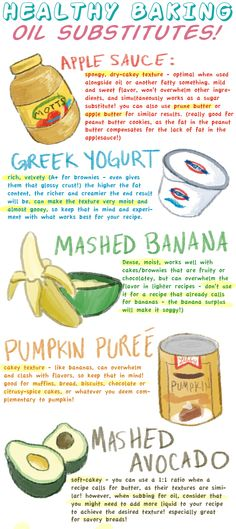 HEALTHY BAKING
OIL SUBSTITUTES!
APPLE SAUCE:
spongy, dry-cakey texture - optimal when used
alongside oil or another fatty something. mild
and sweet flavor, won't overwhelm other ingre-
dients, and simultaneously works as a sugar
substitute! you can also use prune butter or
apple butter for similar results. (really good for
peanut butter cookies, as the fat in the peanut
butter compensates for the lack of fat in the
applesauce!)
MOTT'S
GREEK YOGURT
rich, velvety (A+ for brownies - even gives
them that glossy crust!) the higher the fat
content, the richer and creamier the end result
will be. can make the texture very moist and
almost gooey, so keep that in mind and experi-
ment with what works best for your recipe.
MASHED BANANA
Dense, moist, works well with
cakes/brownies that are fruity or
chocolatey, but can overwhelm the
flavor in lighter recipes - don't use
it for a recipe that already calls
for bananas - the banana surplus
will make it soggy!)
PUMPKIN PUREÉ
cakey texture - like bananas, can overwhelm
and clash with flavors, so keep that in mind!
good for muffins, bread, biscuits, chocolate or
citrusy-spice cakes, or whatever you deem com-
plementary to pumpkin!
PUMPKIN
MASHED
AVOCADO
soft-cakey - you can use a 1:1 ratio when a
recipe calls for butter, as their textures are simi-
lar! however, when subbing for oil, consider that
you might need to add more liquid to your recipe
to achieve the desired texture! especially great
for savory breads!